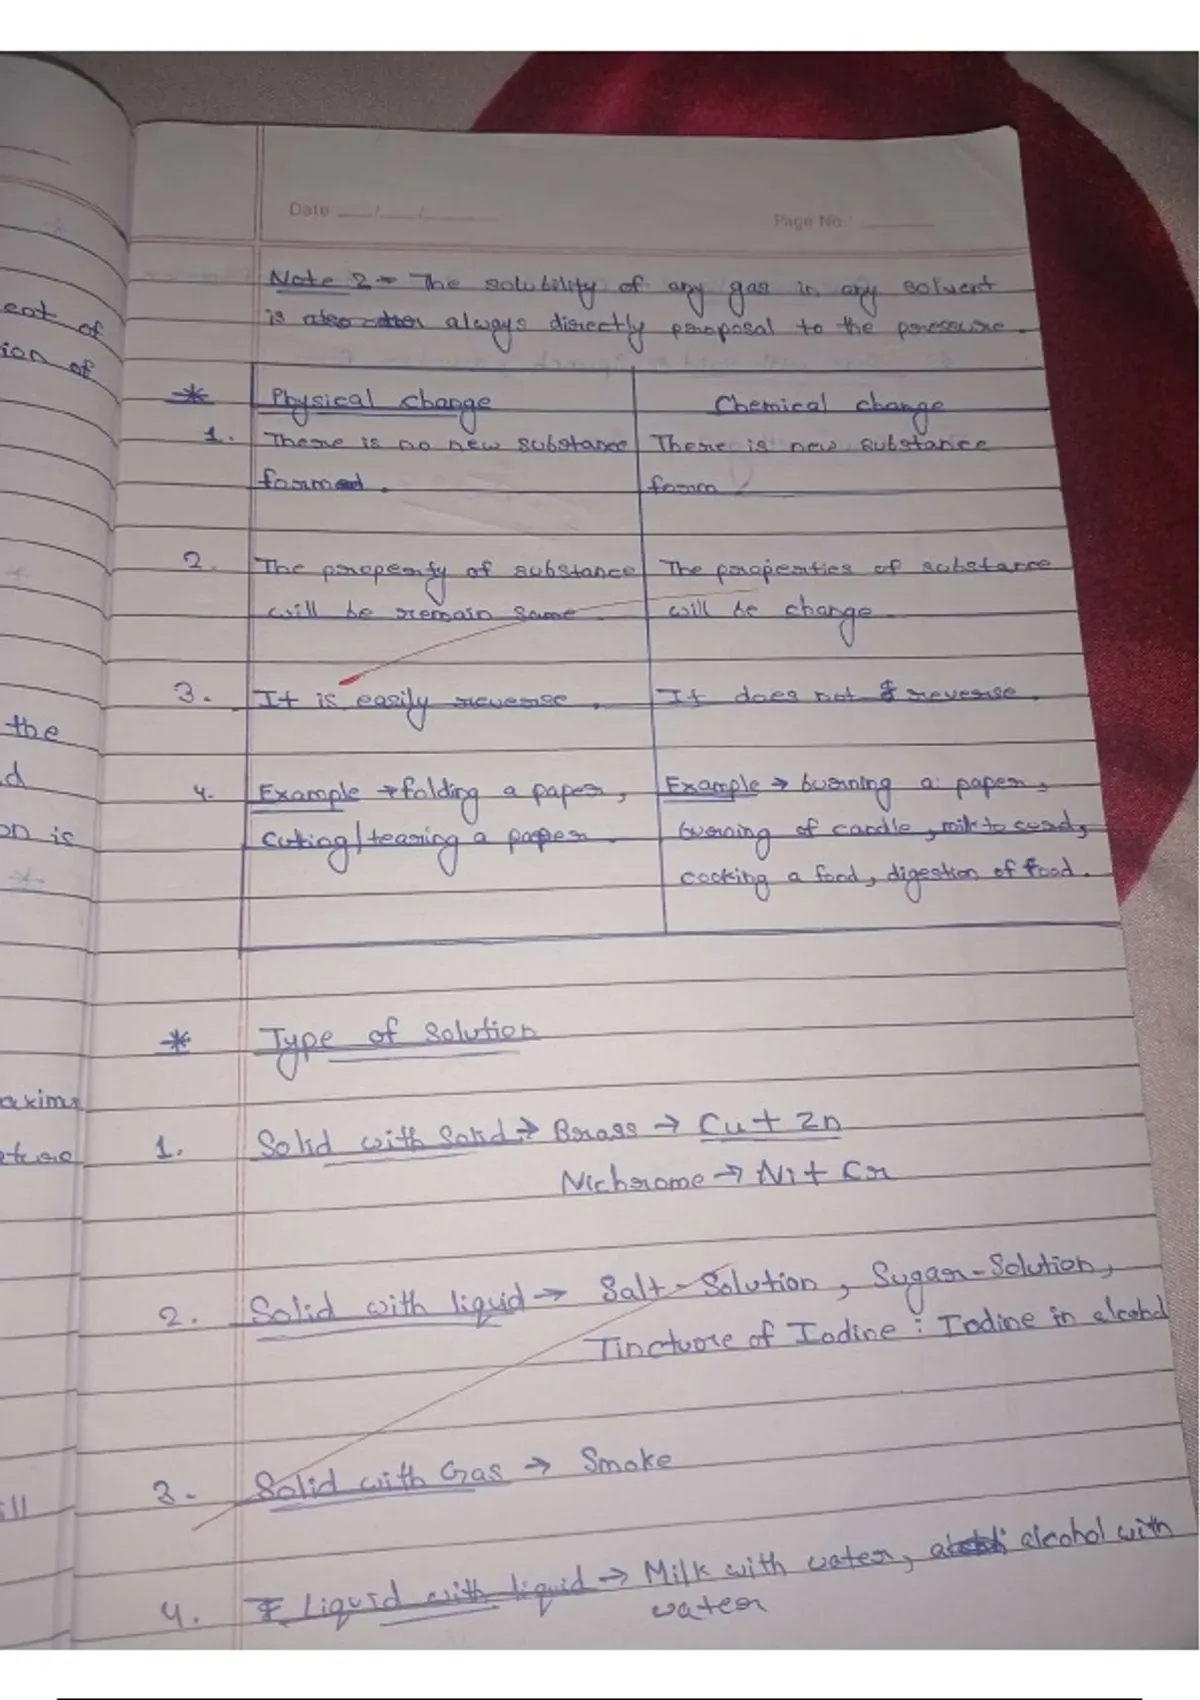 ent of
ion of
the
d
on is
axima
ill
Date
Page No
Note 2 → The solubility of any gas in any solvent
is always directly proposal to the pressure.
* Physical change Chemical change
1. There is no new substance There is new substance
formed. form
2. The property of substance The properties of substance
will be remain same. will be change.
3. It is easily reverse. It does not reverse.
4. Example → folding a paper, Example → burning a paper,
cutting/tearing a paper. burning of candle, milk to curd,
cooking a food, digestion of food.
* Type of Solution
1. Solid with Solid → Brass → Cu + Zn
Nichrome → Ni + Cr
2. Solid with liquid → Salt-Solution, Sugar-Solution,
Tincture of Iodine : Iodine in alcohol
3. Solid with Gas → Smoke
4. Liquid with liquid → Milk with water, alcohol with
water